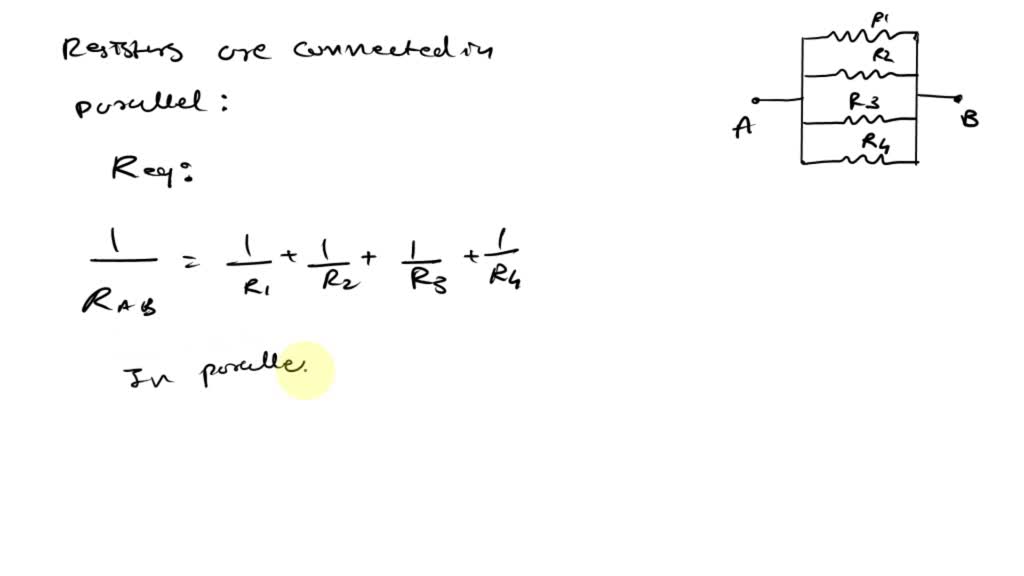 Resistors are connected in
parallel:
Req:
1/RAB = 1/R1 + 1/R2 + 1/R3 + 1/R4
In paralle
R1
R2
R3
R4
A
B